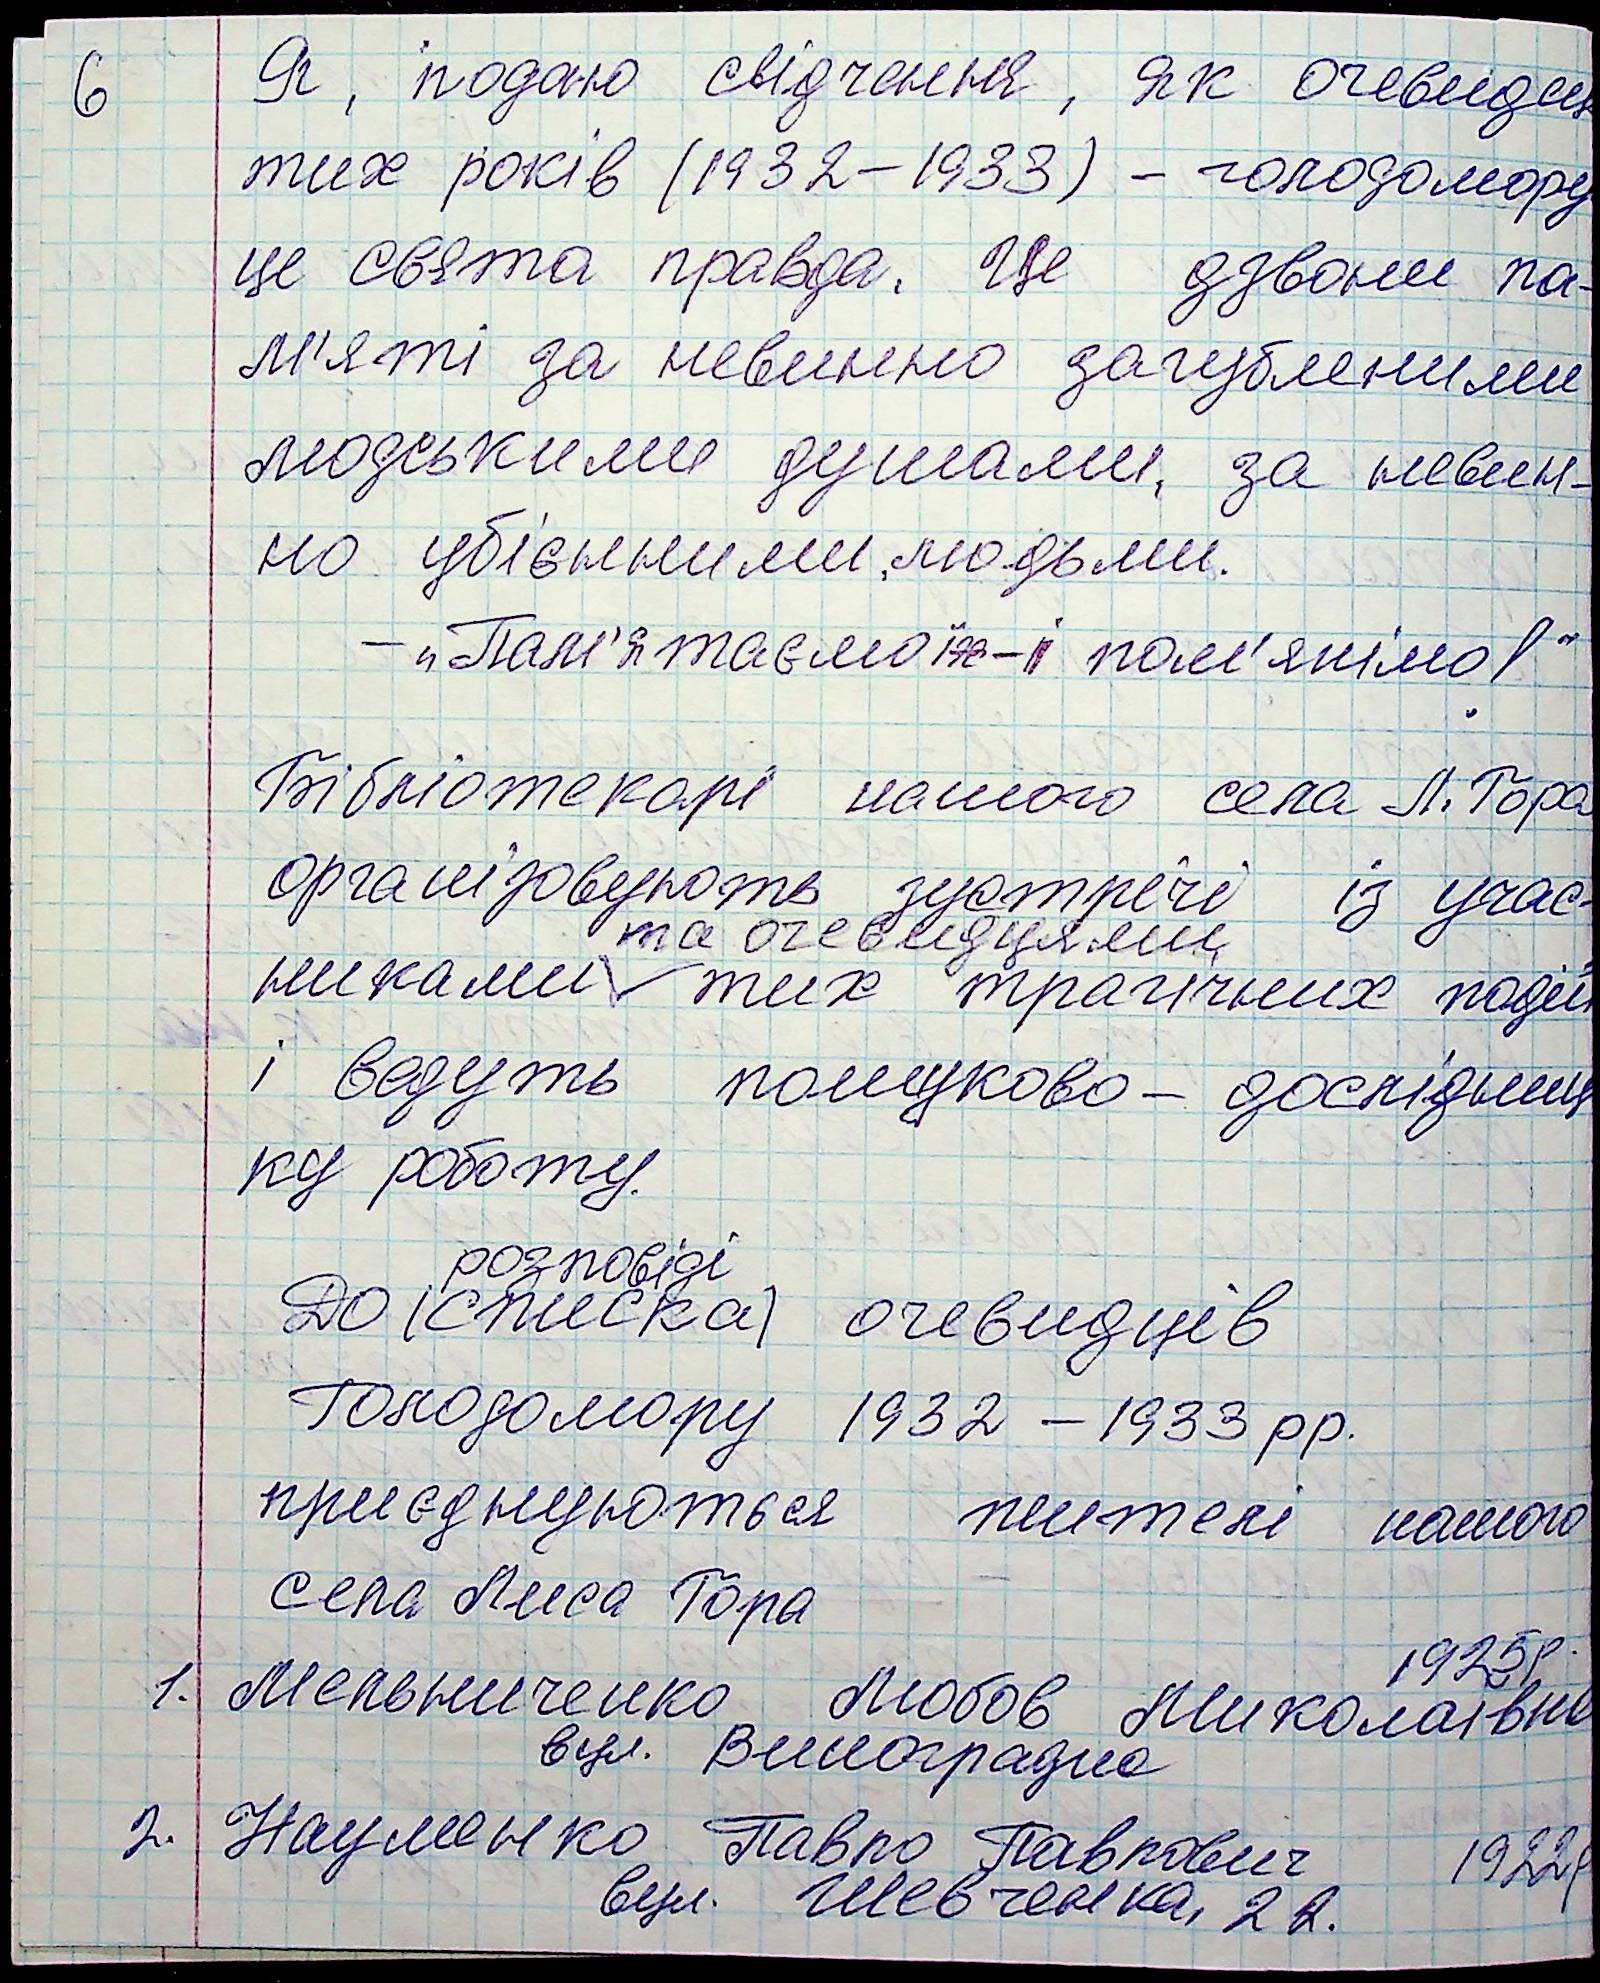 6
Я, подаю свідчення, як очевидец
тих років (1932–1933) – голодомору
це свята правда. Це дзвони па-
м'яті за невинно загубленими
людськими душами, за невин-
но убієнними, людьми.
– „Пам'ятаємо їх – і пом'янімо!"
Бібліотекарі нашого села Л. Гора
організовують зустрічі із учас-
та очевидцями,
никами тих трагічних подій
і ведуть пошуково – дослідниц
ку роботу.
розповіді
До (списка) очевидців
Голодомору 1932 – 1933 рр.
приєднуються жителі нашого
села Лиса Гора
1925р.
1. Мельниченко Любов Миколаївна
вул. Виноградна
2. Науменко Павло Павлович 1922р
вул. Шевченка, 22.